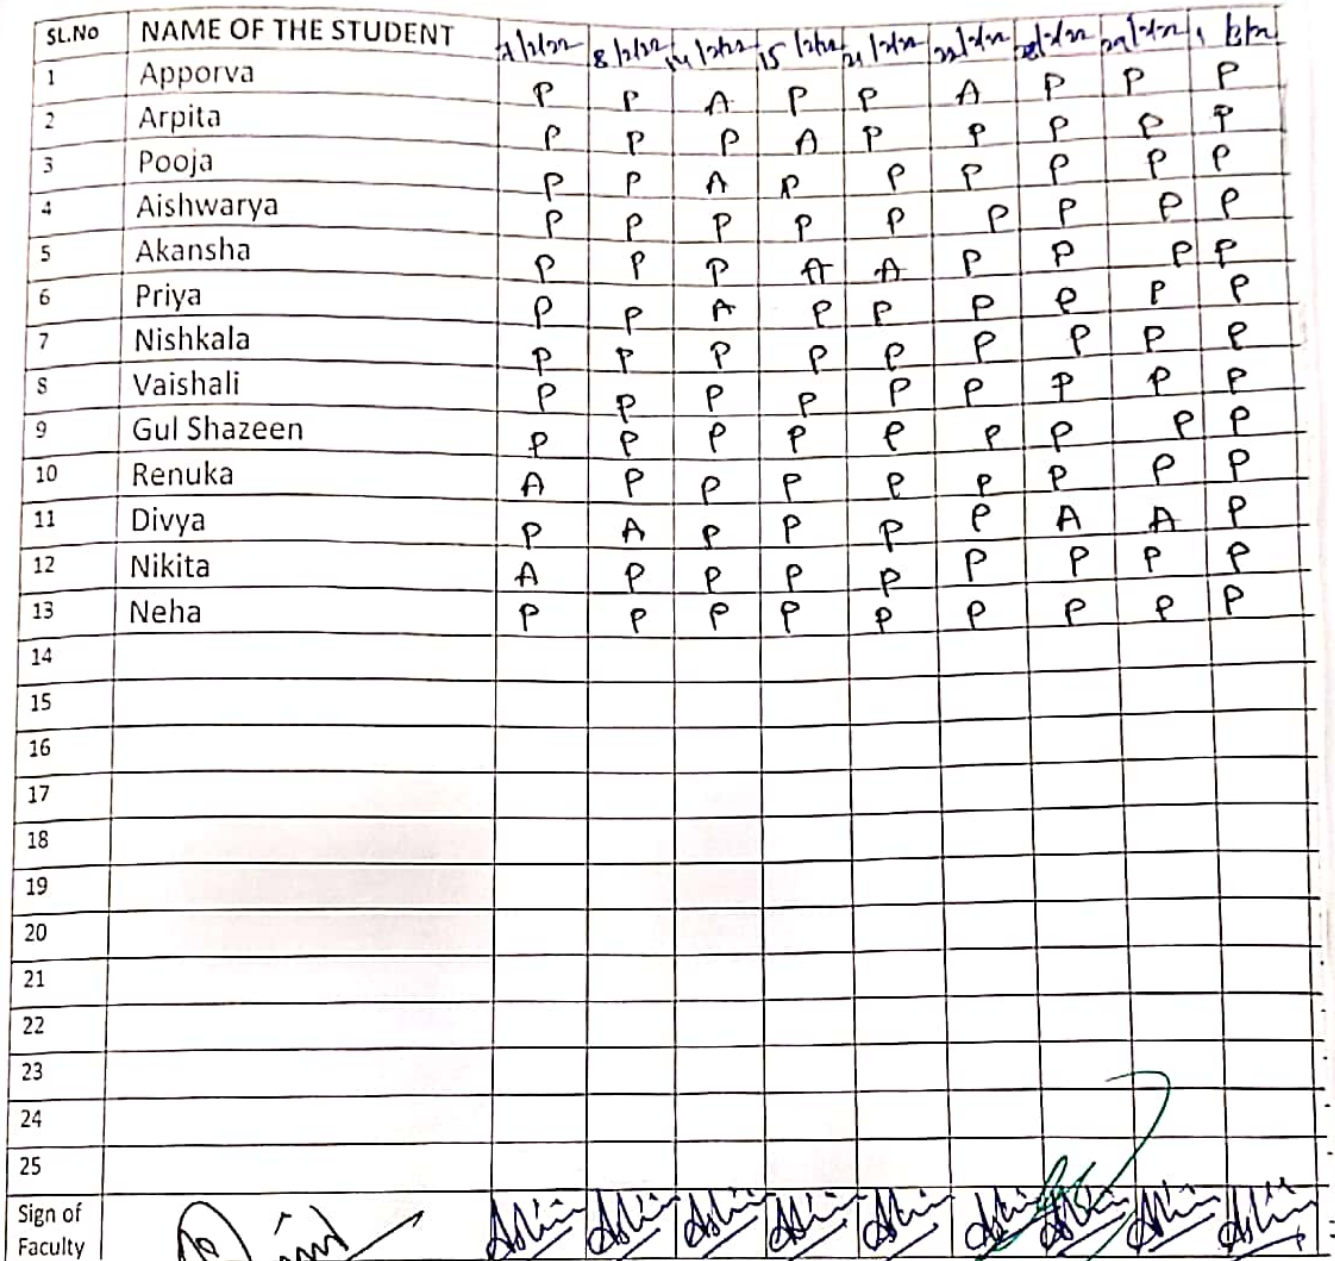 SL.No NAME OF THE STUDENT 7/2/22 8/2/22 14/2/22 15/2/22 21/2/22 22/2/22 28/2/22
1 Apporva P P A P P A P P P
2 Arpita P P P A P P P P P
3 Pooja P P A P P P P P P
4 Aishwarya P P P P P P P P P
5 Akansha P P P A A P P P P
6 Priya P P A P P P P P P
7 Nishkala P P P P P P P P P
8 Vaishali P P P P P P P P P
9 Gul Shazeen P P P P P P P P P
10 Renuka A P P P P P P P P
11 Divya P A P P P P A A P
12 Nikita A P P P P P P P P
13 Neha P P P P P P P P P
14
15
16
17
18
19
20
21
22
23
24
25
Sign of
Faculty